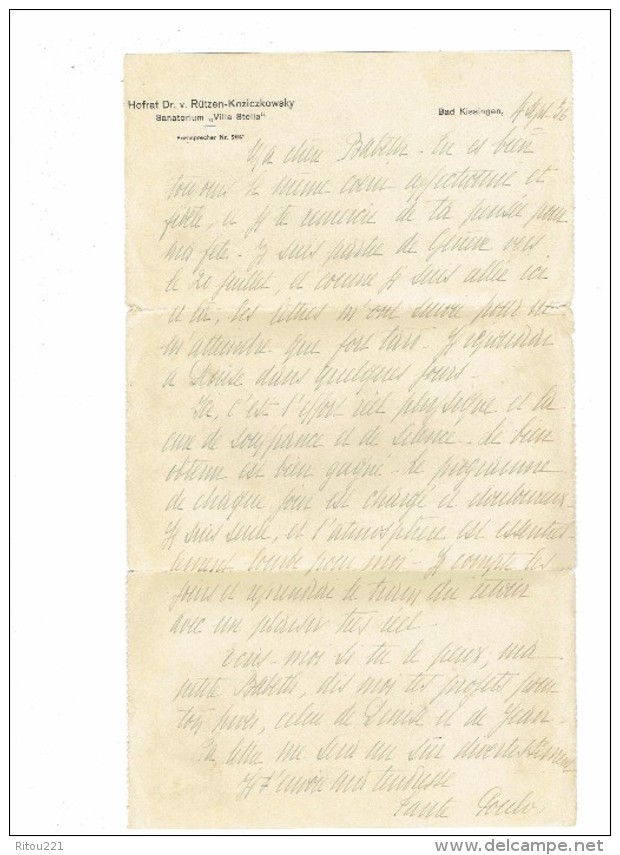 Hofrat Dr. v. Rützen-Knziczkowsky
Sanatorium „Villa Stella"
Fernsprecher Nr.
Bad Kissingen, 4 Sept 26
Ma chère Babeth - Tu es bien
toujours le même coeur affectionné et
fidèle, et je te remercie de ta pensée pour
ma fête. Je suis partie de Genève vers
le 20 juillet, et comme je suis allée ici
et là, les lettres m'ont suivie pour ne
m'atteindre que fort tard. J'
à Denise dans quelques jours.
Ici, c'est l'effort réel physique et la
cure de souffrance et de silence. Le bien
obtenu est bien gagné - Le programme
de chaque jour est chargé et douloureux.
Je suis seule, et l'atmosphère est essentiel-
lement lourde pour moi - Je compte les
jours et reprendrai le train du retour
avec un plaisir très réel.
Ecris-moi si tu le peux, ma
petite Babeth, dis moi tes projets pour
ton hiver, celui de Denise et de Jean -
Ta lettre me sera un sûr divertissement
Je t'envoie ma tendresse
Tante
Ritou221
www.delcampe.net